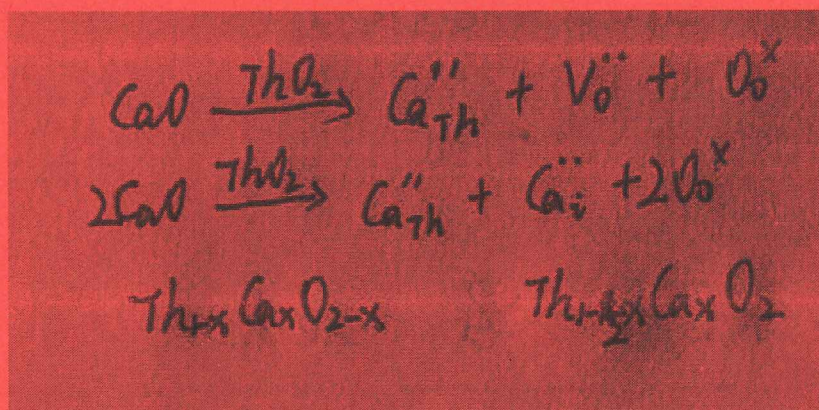 CaO \xrightarrow{ThO₂} Ca_{Th}'' + V_O^{··} + O_O^x
2CaO \xrightarrow{ThO₂} Ca_{Th}'' + Ca_i^{··} + 2O_O^x
Th_{1-x}Ca_xO_{2-x} Th_{1-\frac{1}{2}x}Ca_xO_2